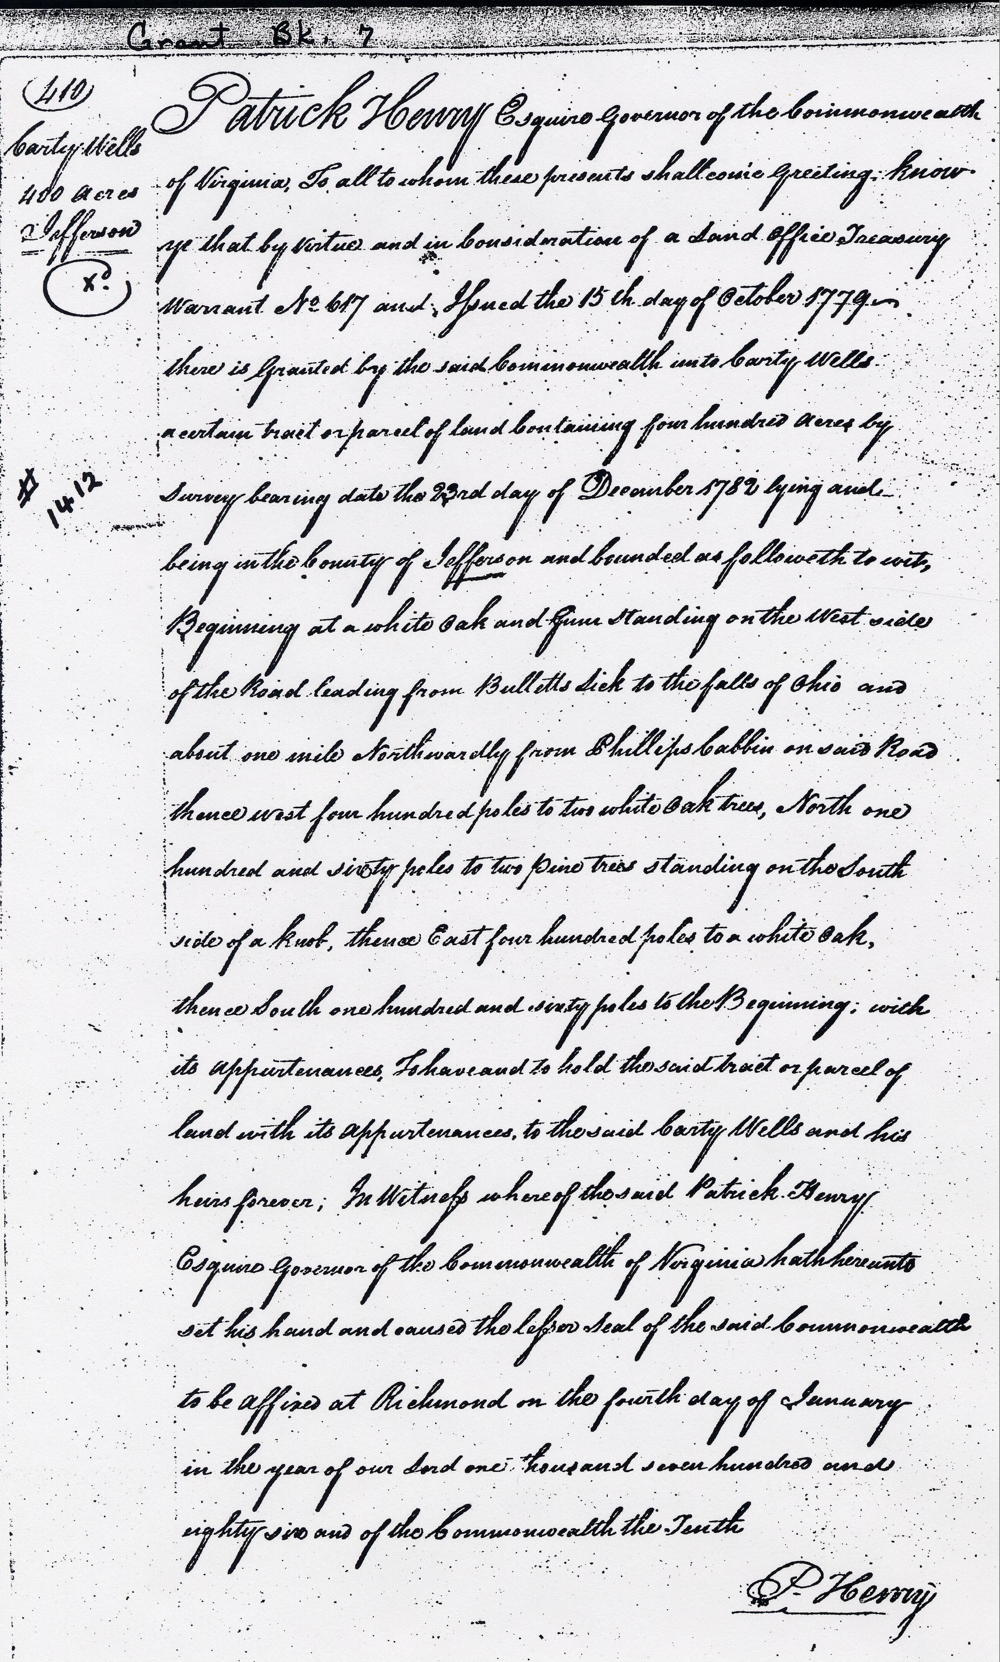 Grant Bk. 7
410
Carty Wells
400 Acres
Jefferson
Xd.
# 1412
Patrick Henry Esquire Governor of the Commonwealth
of Virginia, To all to whom these presents shall come Greeting: know
ye that by Virtue and in Consideration of a Land Office Treasury
Warrant No 617 and Issued the 15th day of October 1779
there is Granted by the said Commonwealth unto Carty Wells
a certain tract or parcel of land Containing four hundred Acres by
Survey bearing date the 23rd day of December 1782 lying and
being in the County of Jefferson and bounded as followeth to wit,
Beginning at a white Oak and Gum standing on the West side
of the Road leading from Bulletts Lick to the falls of Ohio and
about one mile Northwardly from Phillips Cabbin on said Road
thence west four hundred poles to two white Oak trees, North one
hundred and sixty poles to two pine trees standing on the South
side of a knob, thence East four hundred poles to a white Oak,
thence South one hundred and sixty poles to the Beginning; with
its appurtenances, To have and to hold the said tract or parcel of
land with its appurtenances, to the said Carty Wells and his
heirs forever; In Witness whereof the said Patrick Henry
Esquire Governor of the Commonwealth of Virginia hath hereunto
set his hand and caused the lesser Seal of the said Commonwealth
to be affixed at Richmond on the fourth day of January
in the year of our Lord one thousand seven hundred and
eighty six and of the Commonwealth the Tenth
P. Henry